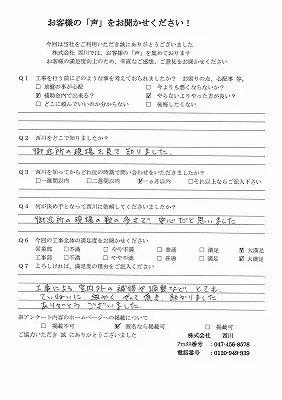 お客様の「声」をお聞かせください！
今回は当社をご利用いただき誠にありがとうございました
株式会社 西川では、お客様の「声」を集めております
お客様の満足度向上のため、率直なご感想、ご意見をお聞かせください
Q1 工事を行う前にどのような事を考えておられましたか？ お困りの点、心配事 等。
□ 地盤の事が心配 □ 今よりも悪くならないか？
☑ 補助金内で出来る？ ☑ やらないよりやった方が良い？
□ どこに頼んでいいのか分からない □ 後悔したくない
Q2 西川をどこで知りましたか？
御近所の現場を見て知りました
Q3 西川を知ってからどれ位の時期で問い合わせをいただきましたか？
□一週間以内 □二週間以内 ☑一ヵ月以内 □それ以上ならご記入下さい
Q4 何が決め手となって西川に依頼してくださいましたか？
御近所の現場の数の多さで、安心だと思いました
Q6 今回の工事全体の満足度をお聞かせください
営業部 □不満 □やや不満 □普通 □満足 ☑大満足
工事部 □不満 □やや不満 □普通 □満足 ☑大満足
Q7 よろしければ、満足度の理由をご記入ください
工事による室内外の補修や調整など、とても
ていねいに 細かく やって頂き 助かりました
ありがとうございました
※アンケート内容のホームページへの掲載について
□ 掲載不可 ☑ 匿名なら掲載可 □ 掲載可
ご協力いただき 誠 にありがとうございました 株式会社 西川
ファックス番号 ：047-456-8578
電話番号 ：0120-949-939